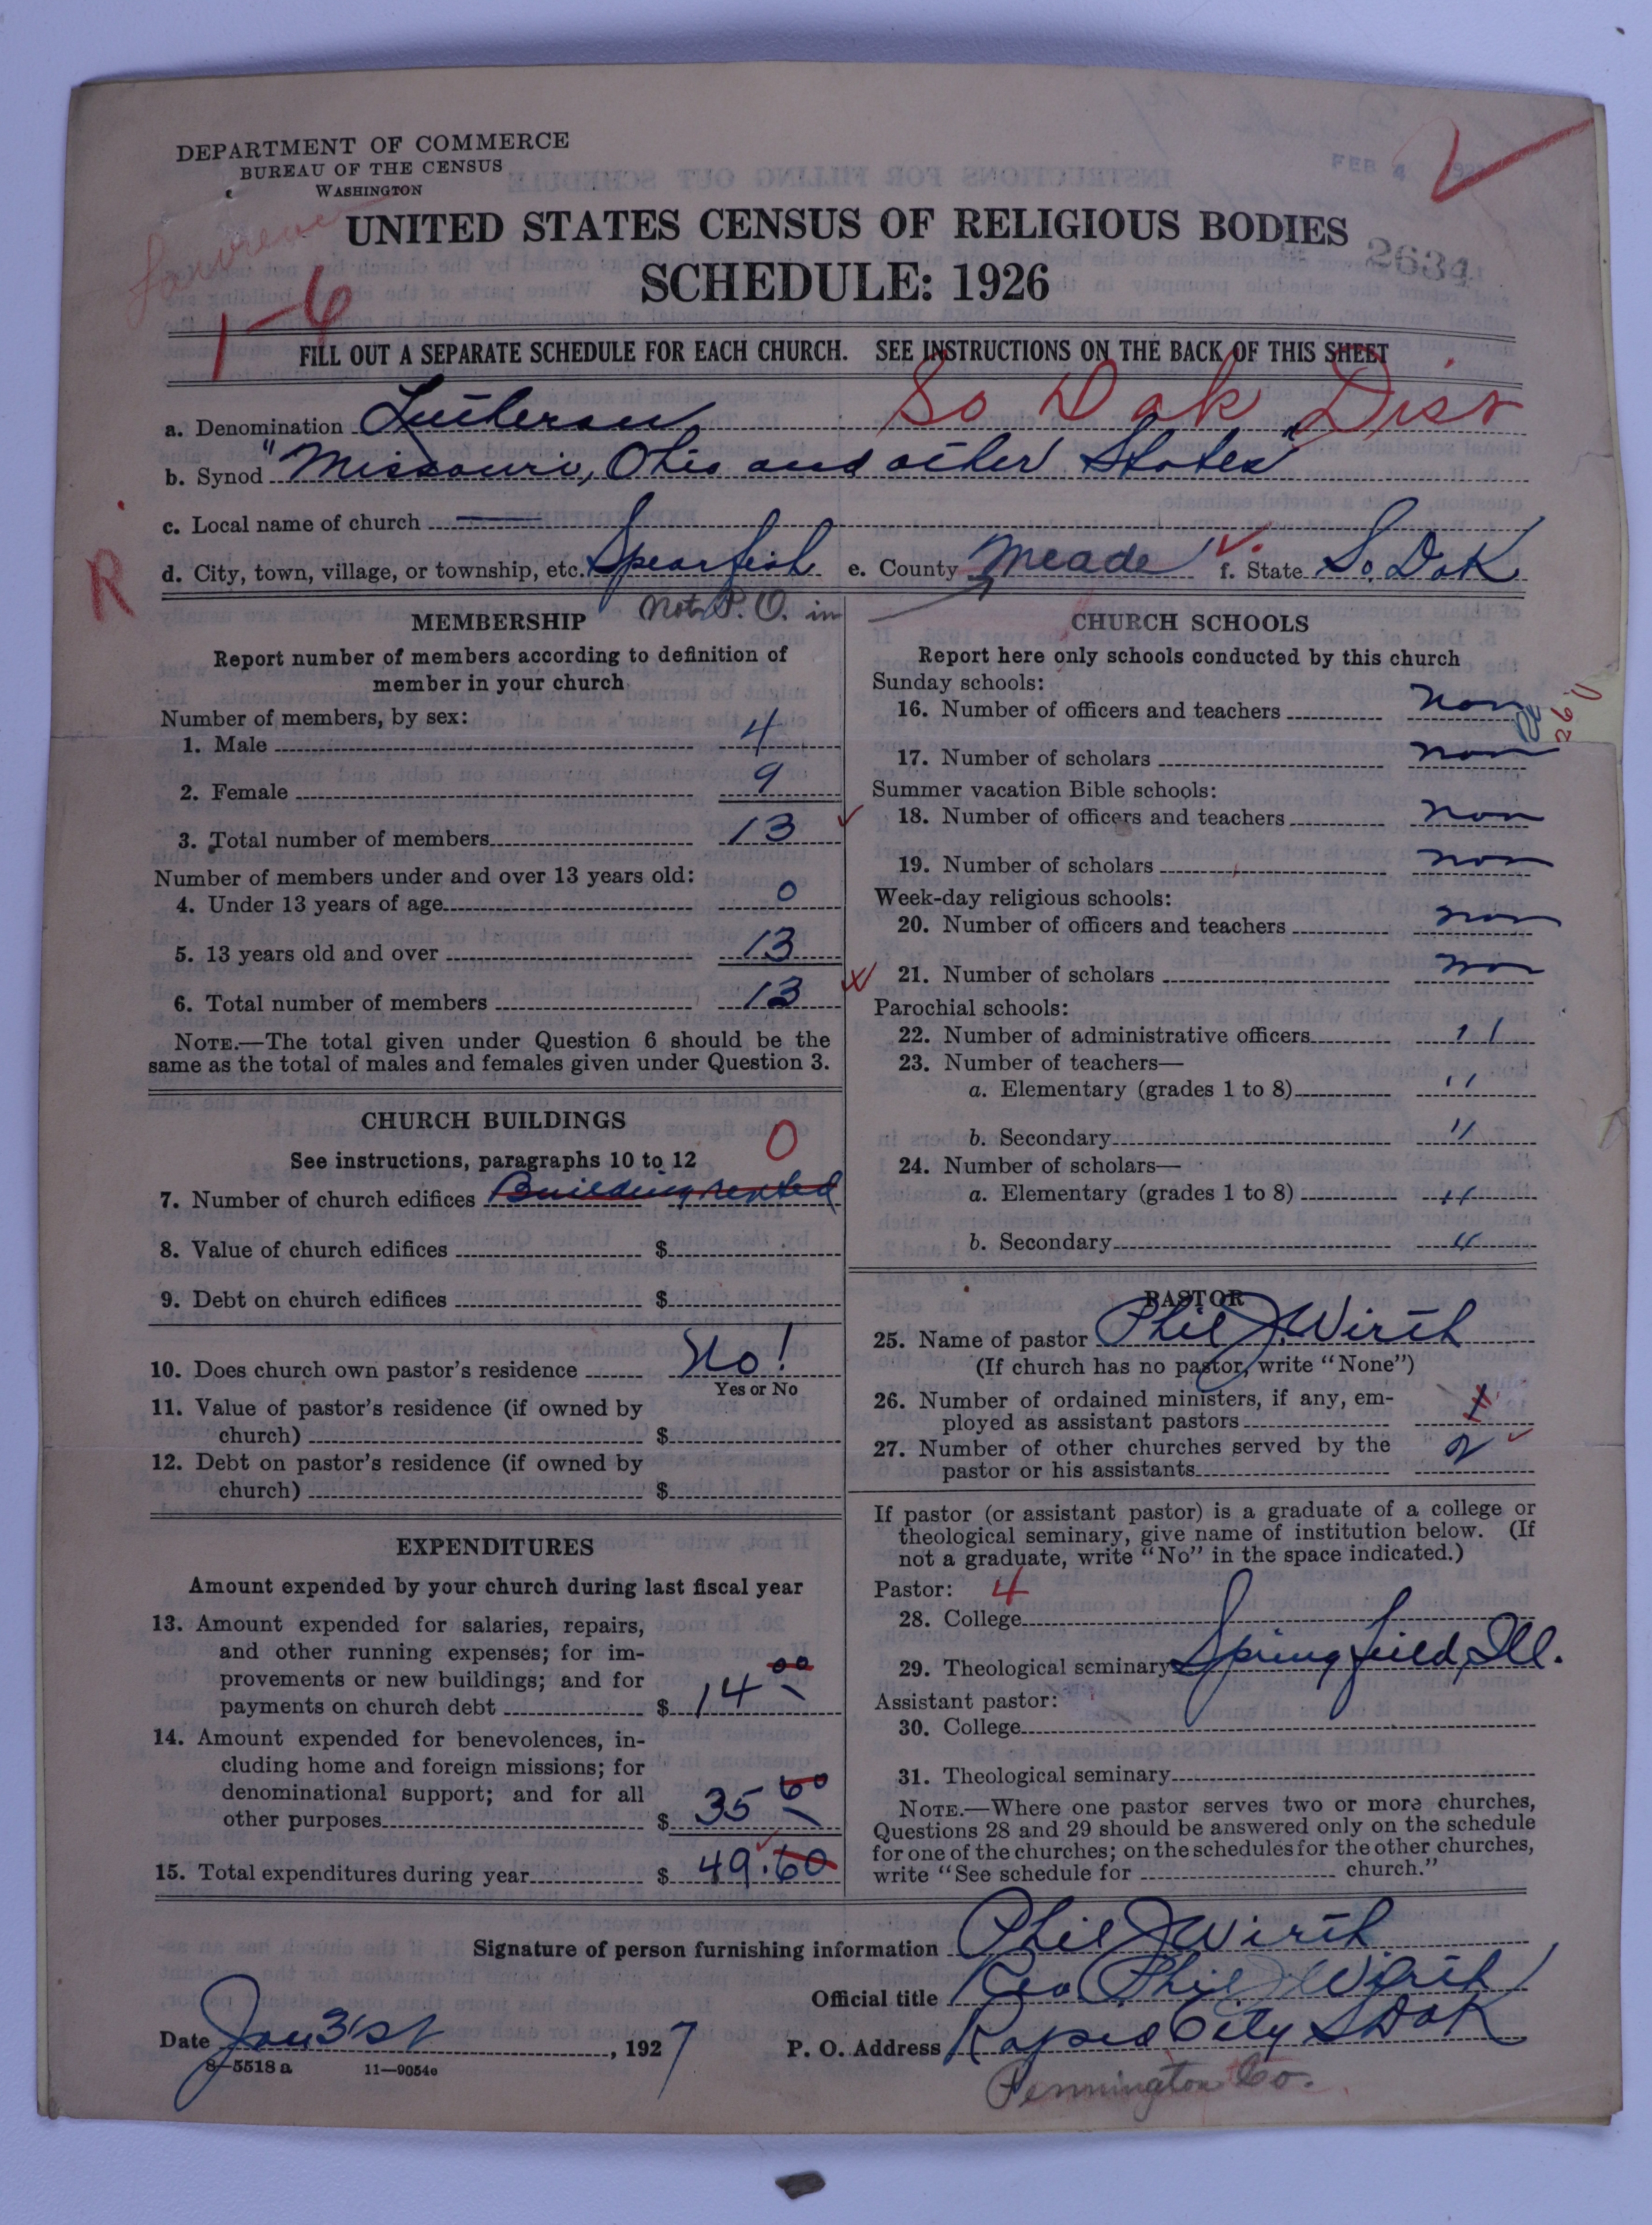 DEPARTMENT OF COMMERCE
BUREAU OF THE CENSUS
WASHINGTON
FEB 4
Lawrence
UNITED STATES CENSUS OF RELIGIOUS BODIES
2634
SCHEDULE: 1926
1-6
FILL OUT A SEPARATE SCHEDULE FOR EACH CHURCH. SEE INSTRUCTIONS ON THE BACK OF THIS SHEET
So Dak Dist
a. Denomination Lutheran
b. Synod "Missouri, Ohio and other States"
c. Local name of church —
d. City, town, village, or township, etc. Spearfish e. County Meade f. State So. Dak
R
Not P. O. in
MEMBERSHIP
Report number of members according to definition of
member in your church
Number of members, by sex:
1. Male 4
2. Female 9
3. Total number of members 13
Number of members under and over 13 years old:
4. Under 13 years of age 0
5. 13 years old and over 13
6. Total number of members 13
NOTE.—The total given under Question 6 should be the
same as the total of males and females given under Question 3.
CHURCH BUILDINGS
0
See instructions, paragraphs 10 to 12
7. Number of church edifices Building rented
8. Value of church edifices $
9. Debt on church edifices $
10. Does church own pastor's residence No!
Yes or No
11. Value of pastor's residence (if owned by
church) $
12. Debt on pastor's residence (if owned by
church) $
EXPENDITURES
Amount expended by your church during last fiscal year
13. Amount expended for salaries, repairs,
and other running expenses; for im-
provements or new buildings; and for
payments on church debt $ 14 00
14. Amount expended for benevolences, in-
cluding home and foreign missions; for
denominational support; and for all
other purposes $ 35 60
15. Total expenditures during year $ 49.60
CHURCH SCHOOLS
Report here only schools conducted by this church
Sunday schools:
16. Number of officers and teachers non
17. Number of scholars non
Summer vacation Bible schools:
18. Number of officers and teachers non
19. Number of scholars non
Week-day religious schools:
20. Number of officers and teachers non
21. Number of scholars non
Parochial schools:
22. Number of administrative officers "
23. Number of teachers—
a. Elementary (grades 1 to 8) "
b. Secondary "
24. Number of scholars—
a. Elementary (grades 1 to 8) "
b. Secondary "
PASTOR
25. Name of pastor Phil J. Wirth
(If church has no pastor, write "None")
26. Number of ordained ministers, if any, em-
ployed as assistant pastors
27. Number of other churches served by the
pastor or his assistants 2
If pastor (or assistant pastor) is a graduate of a college or
theological seminary, give name of institution below. (If
not a graduate, write "No" in the space indicated.)
Pastor: 4
28. College
29. Theological seminary Springfield, Ill.
Assistant pastor:
30. College
31. Theological seminary
NOTE.—Where one pastor serves two or more churches,
Questions 28 and 29 should be answered only on the schedule
for one of the churches; on the schedules for the other churches,
write "See schedule for church."
Signature of person furnishing information Phil J Wirth
Official title Rev Phil J Wirth
Date Jan 31st, 1927
P. O. Address Rapid City S Dak
8-5518 a 11-9054c
Pennington Co.